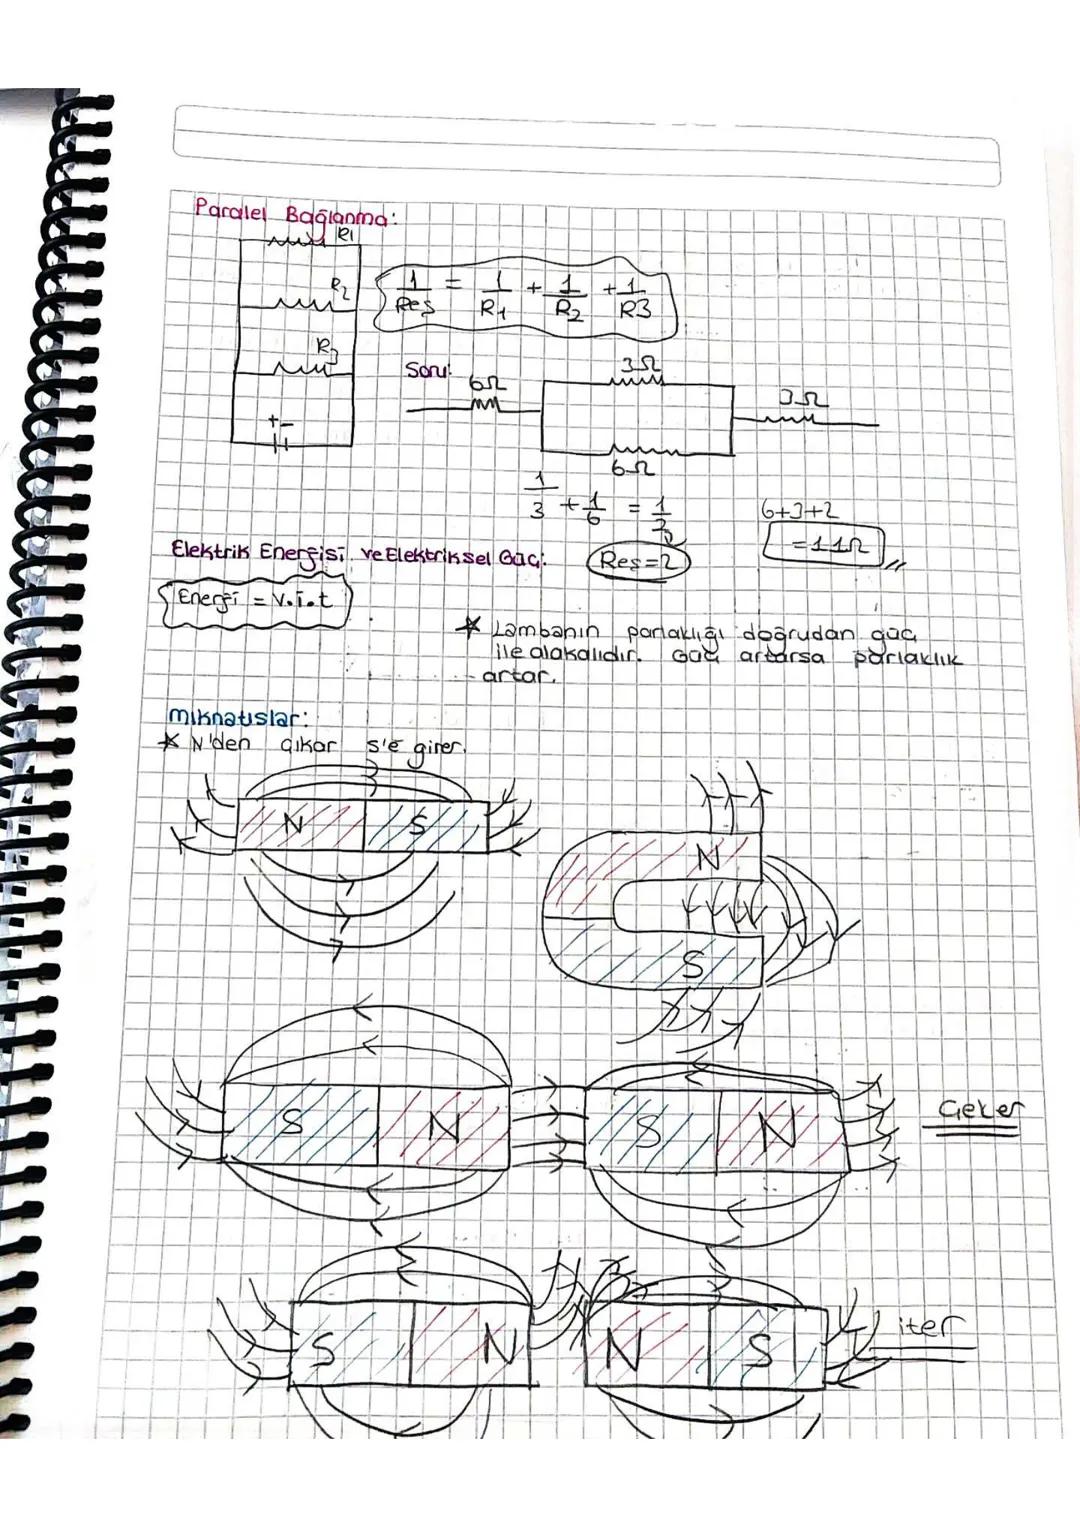 Paralel Bağlanma:
R1
R2
R3
+ -
1/Reş = 1/R1 + 1/R2 + 1/R3
Soru:
6Ω
3Ω
3Ω
6Ω
1/3 + 1/6 = 1/2
6+3+2
=11Ω
Reş=2
Elektrik Enerjisi ve Elektriksel Güç:
Enerji = V.i.t
* Lambanın parlaklığı doğrudan güç
ile alakalıdır. Güç artarsa parlaklık
artar.
mıknatıslar:
* N'den çıkar S'e girer.
N S
N
S
S N S N Çeker
S N N S iter